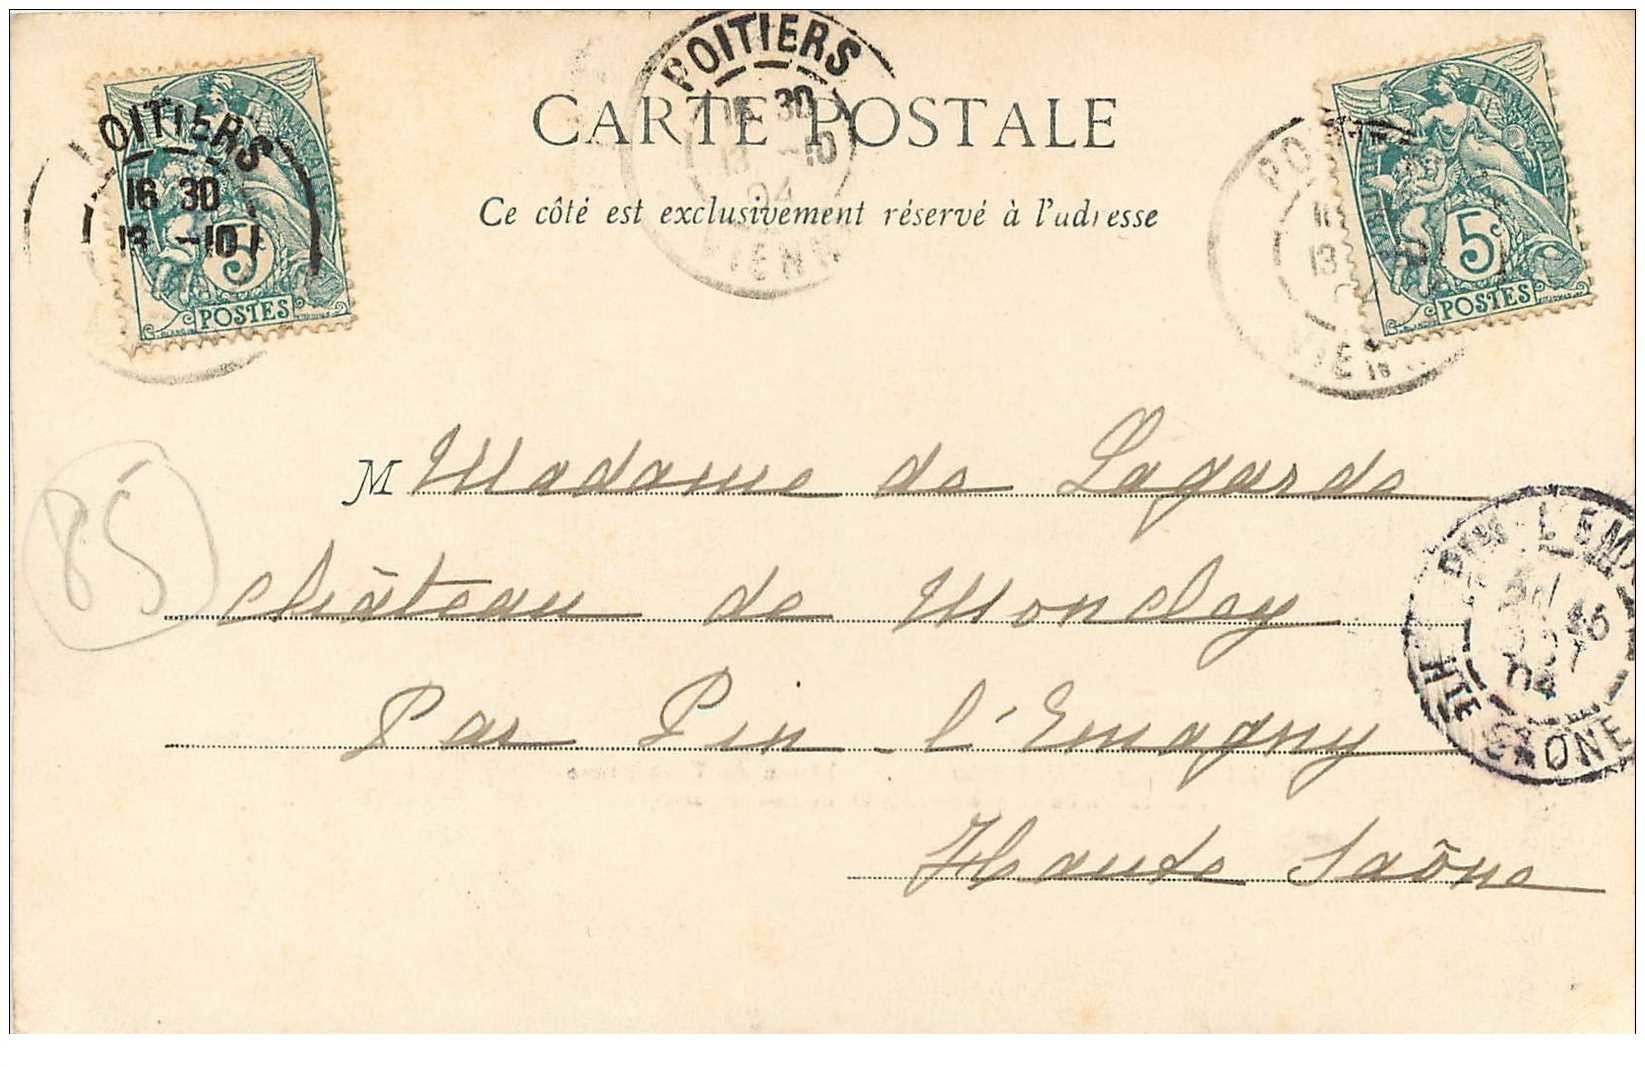 POITIERS
16 30
13 -10
04
VIENN
CARTE POSTALE
Ce côté est exclusivement réservé à l'adresse
OITIERS
16 30
13 -10
RÉPUBLIQUE FRANÇAISE
5
POSTES
PO
13
VIEN
FRANÇAISE
5c
POSTES
85
M Madame de Lagarde
Château de Moncley
Par Pin-l'Emagny
Haute Saône
PIN-L'EM
04
HTE SAONE